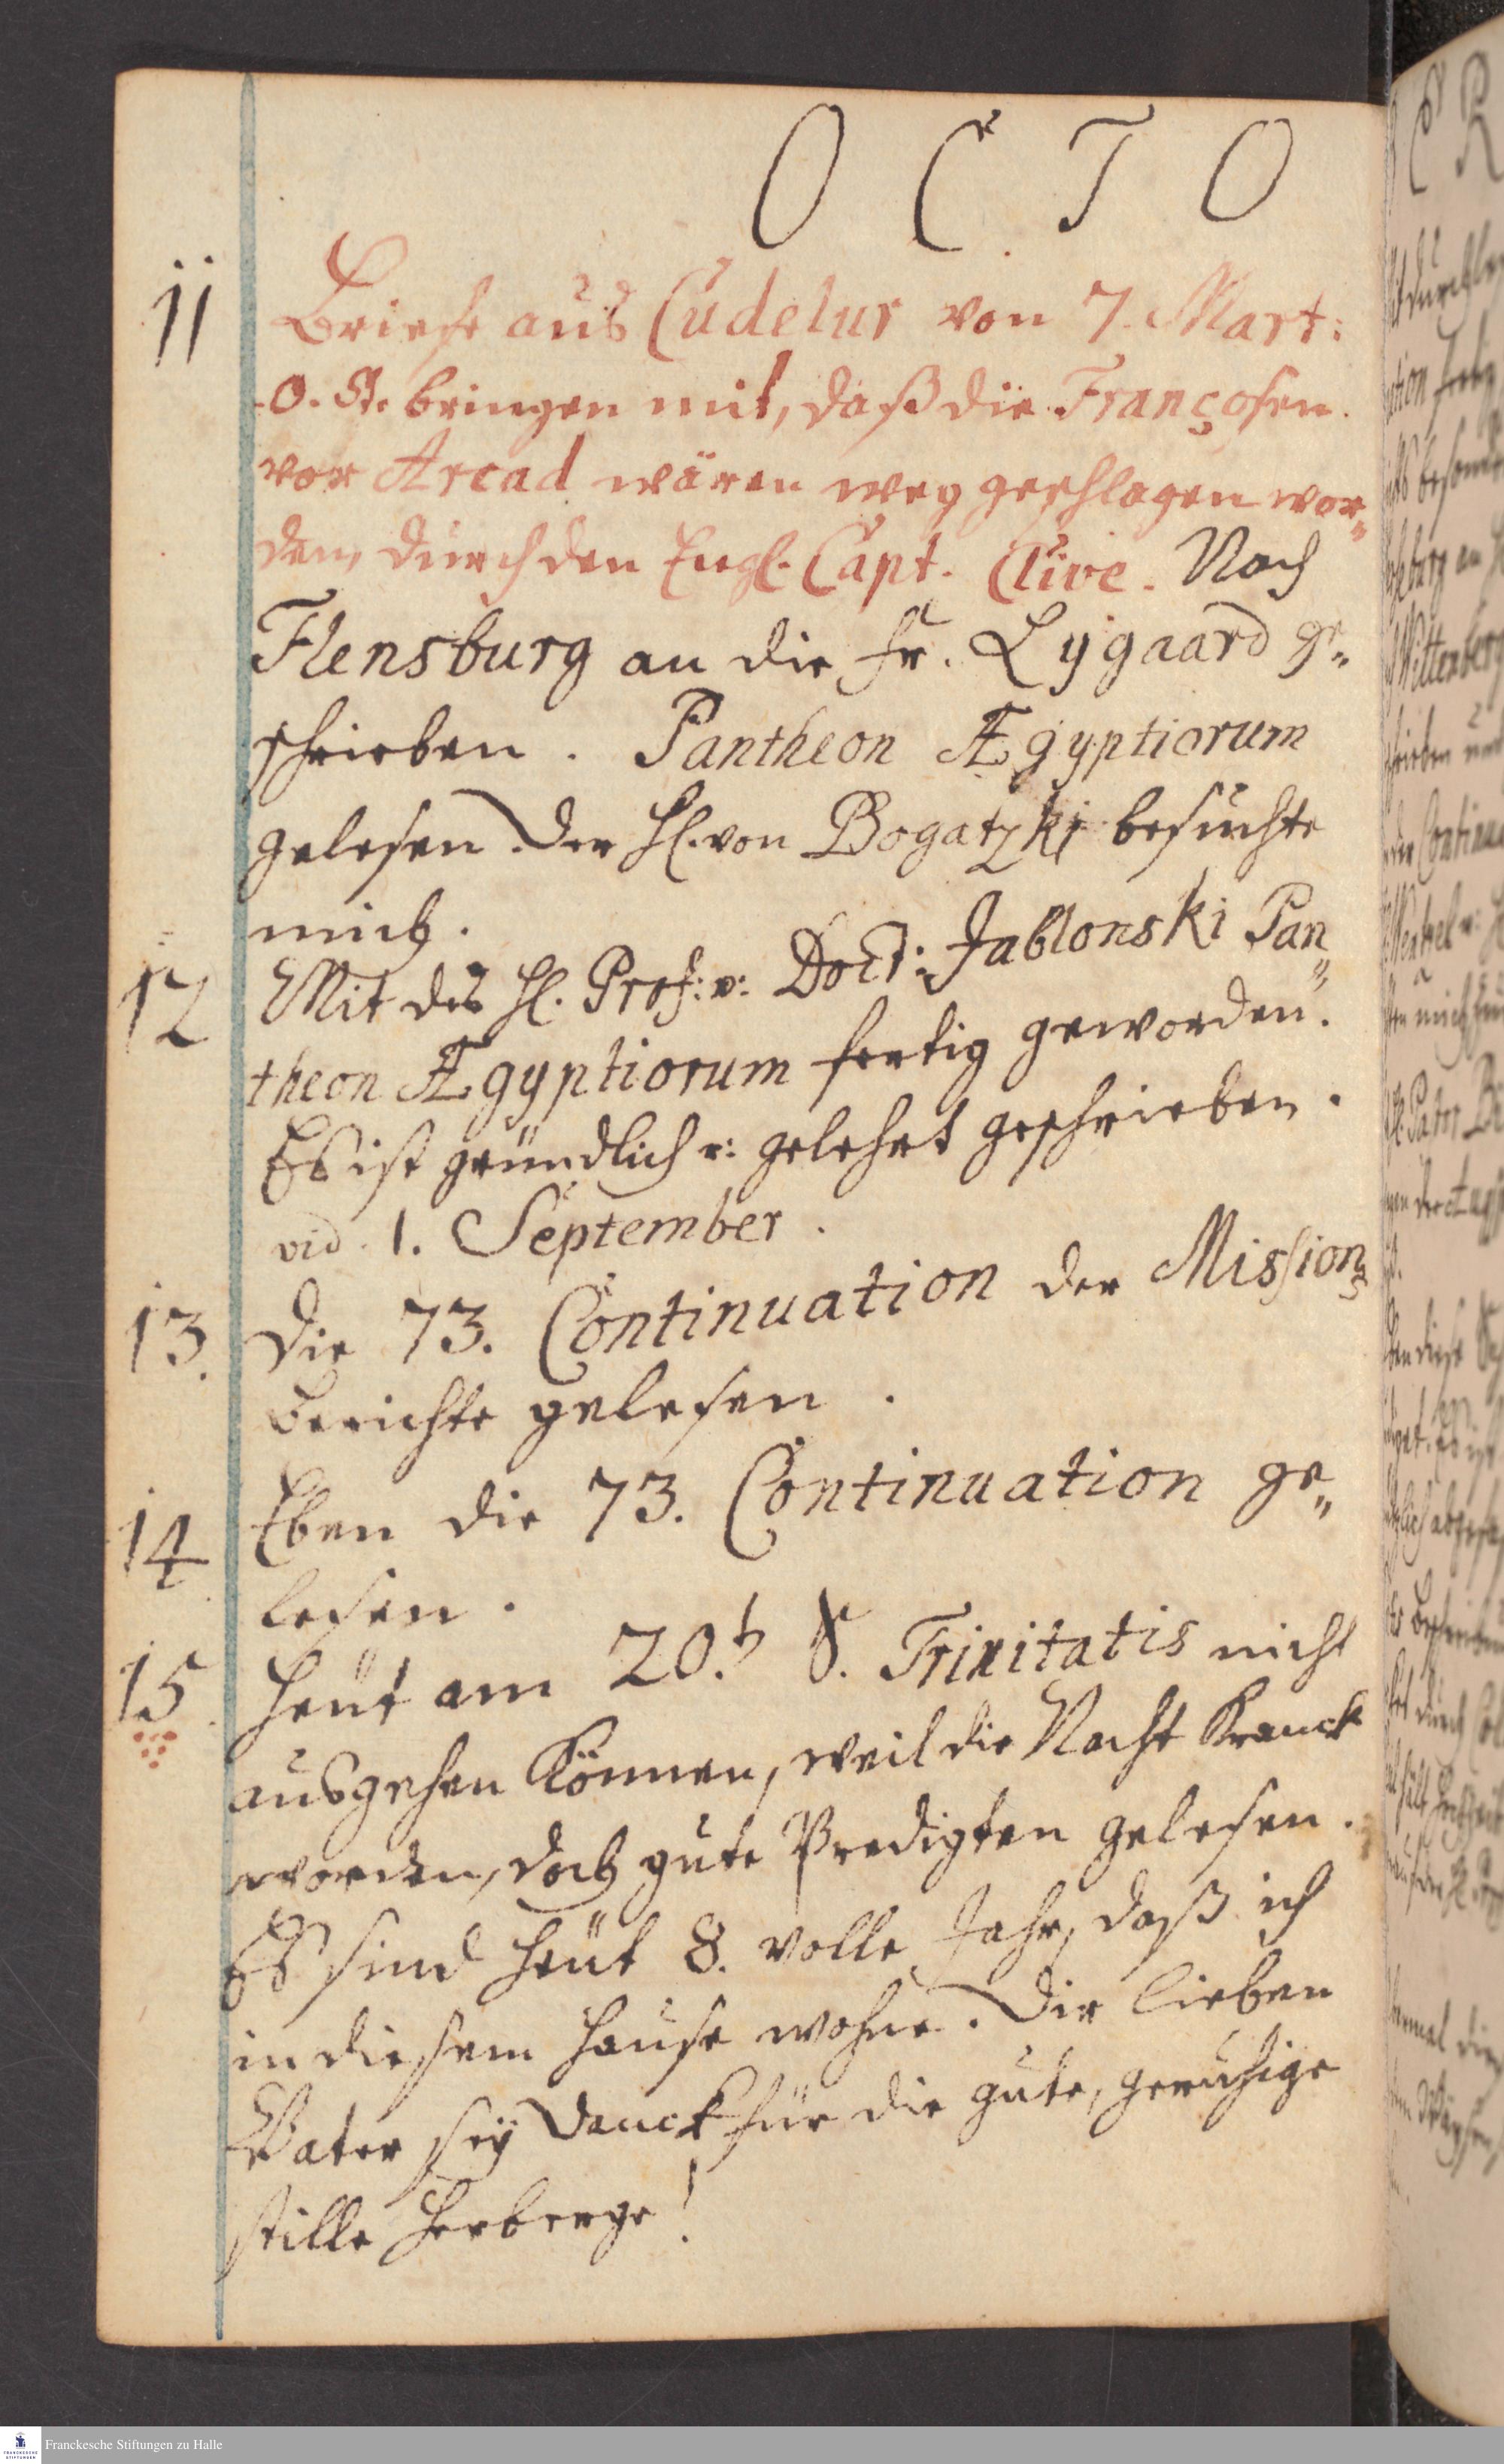 O C T O
11 Briefe aus Cudelur von 7. Mart:
O. St. bringen mit, daß die Françosen
vor Arcad wären weg geschlagen wor„
den, durch den Engl. Capt. Clive. Nach
Flensburg an die Fr. Lygaard ge„
schrieben. Pantheon Ægyptiorum
gelesen. Der H. von Bogatzki besuchte
mich.
12 Mit des H. Prof: u: Doct: Jablonski Pan„
theon Ægyptiorum fertig geworden.
Es ist gründlich u: gelehrt geschrieben.
vid. 1. September.
13. Die 73. Continuation der Missions
Berichte gelesen.
14 Eben die 73. Continuation ge„
lesen.
15 Heüt am 20.t. S. Trinitatis nicht
ausgehen können, weil die Nacht kranck
worden, doch gute Predigten gelesen.
Es sind heüt 8. volle Jahr, daß ich
in diesem Hause wohne. Dir lieben
Vater seÿ Danck für die gute, geruhige
stille Herberge!
Franckesche Stiftungen zu Halle